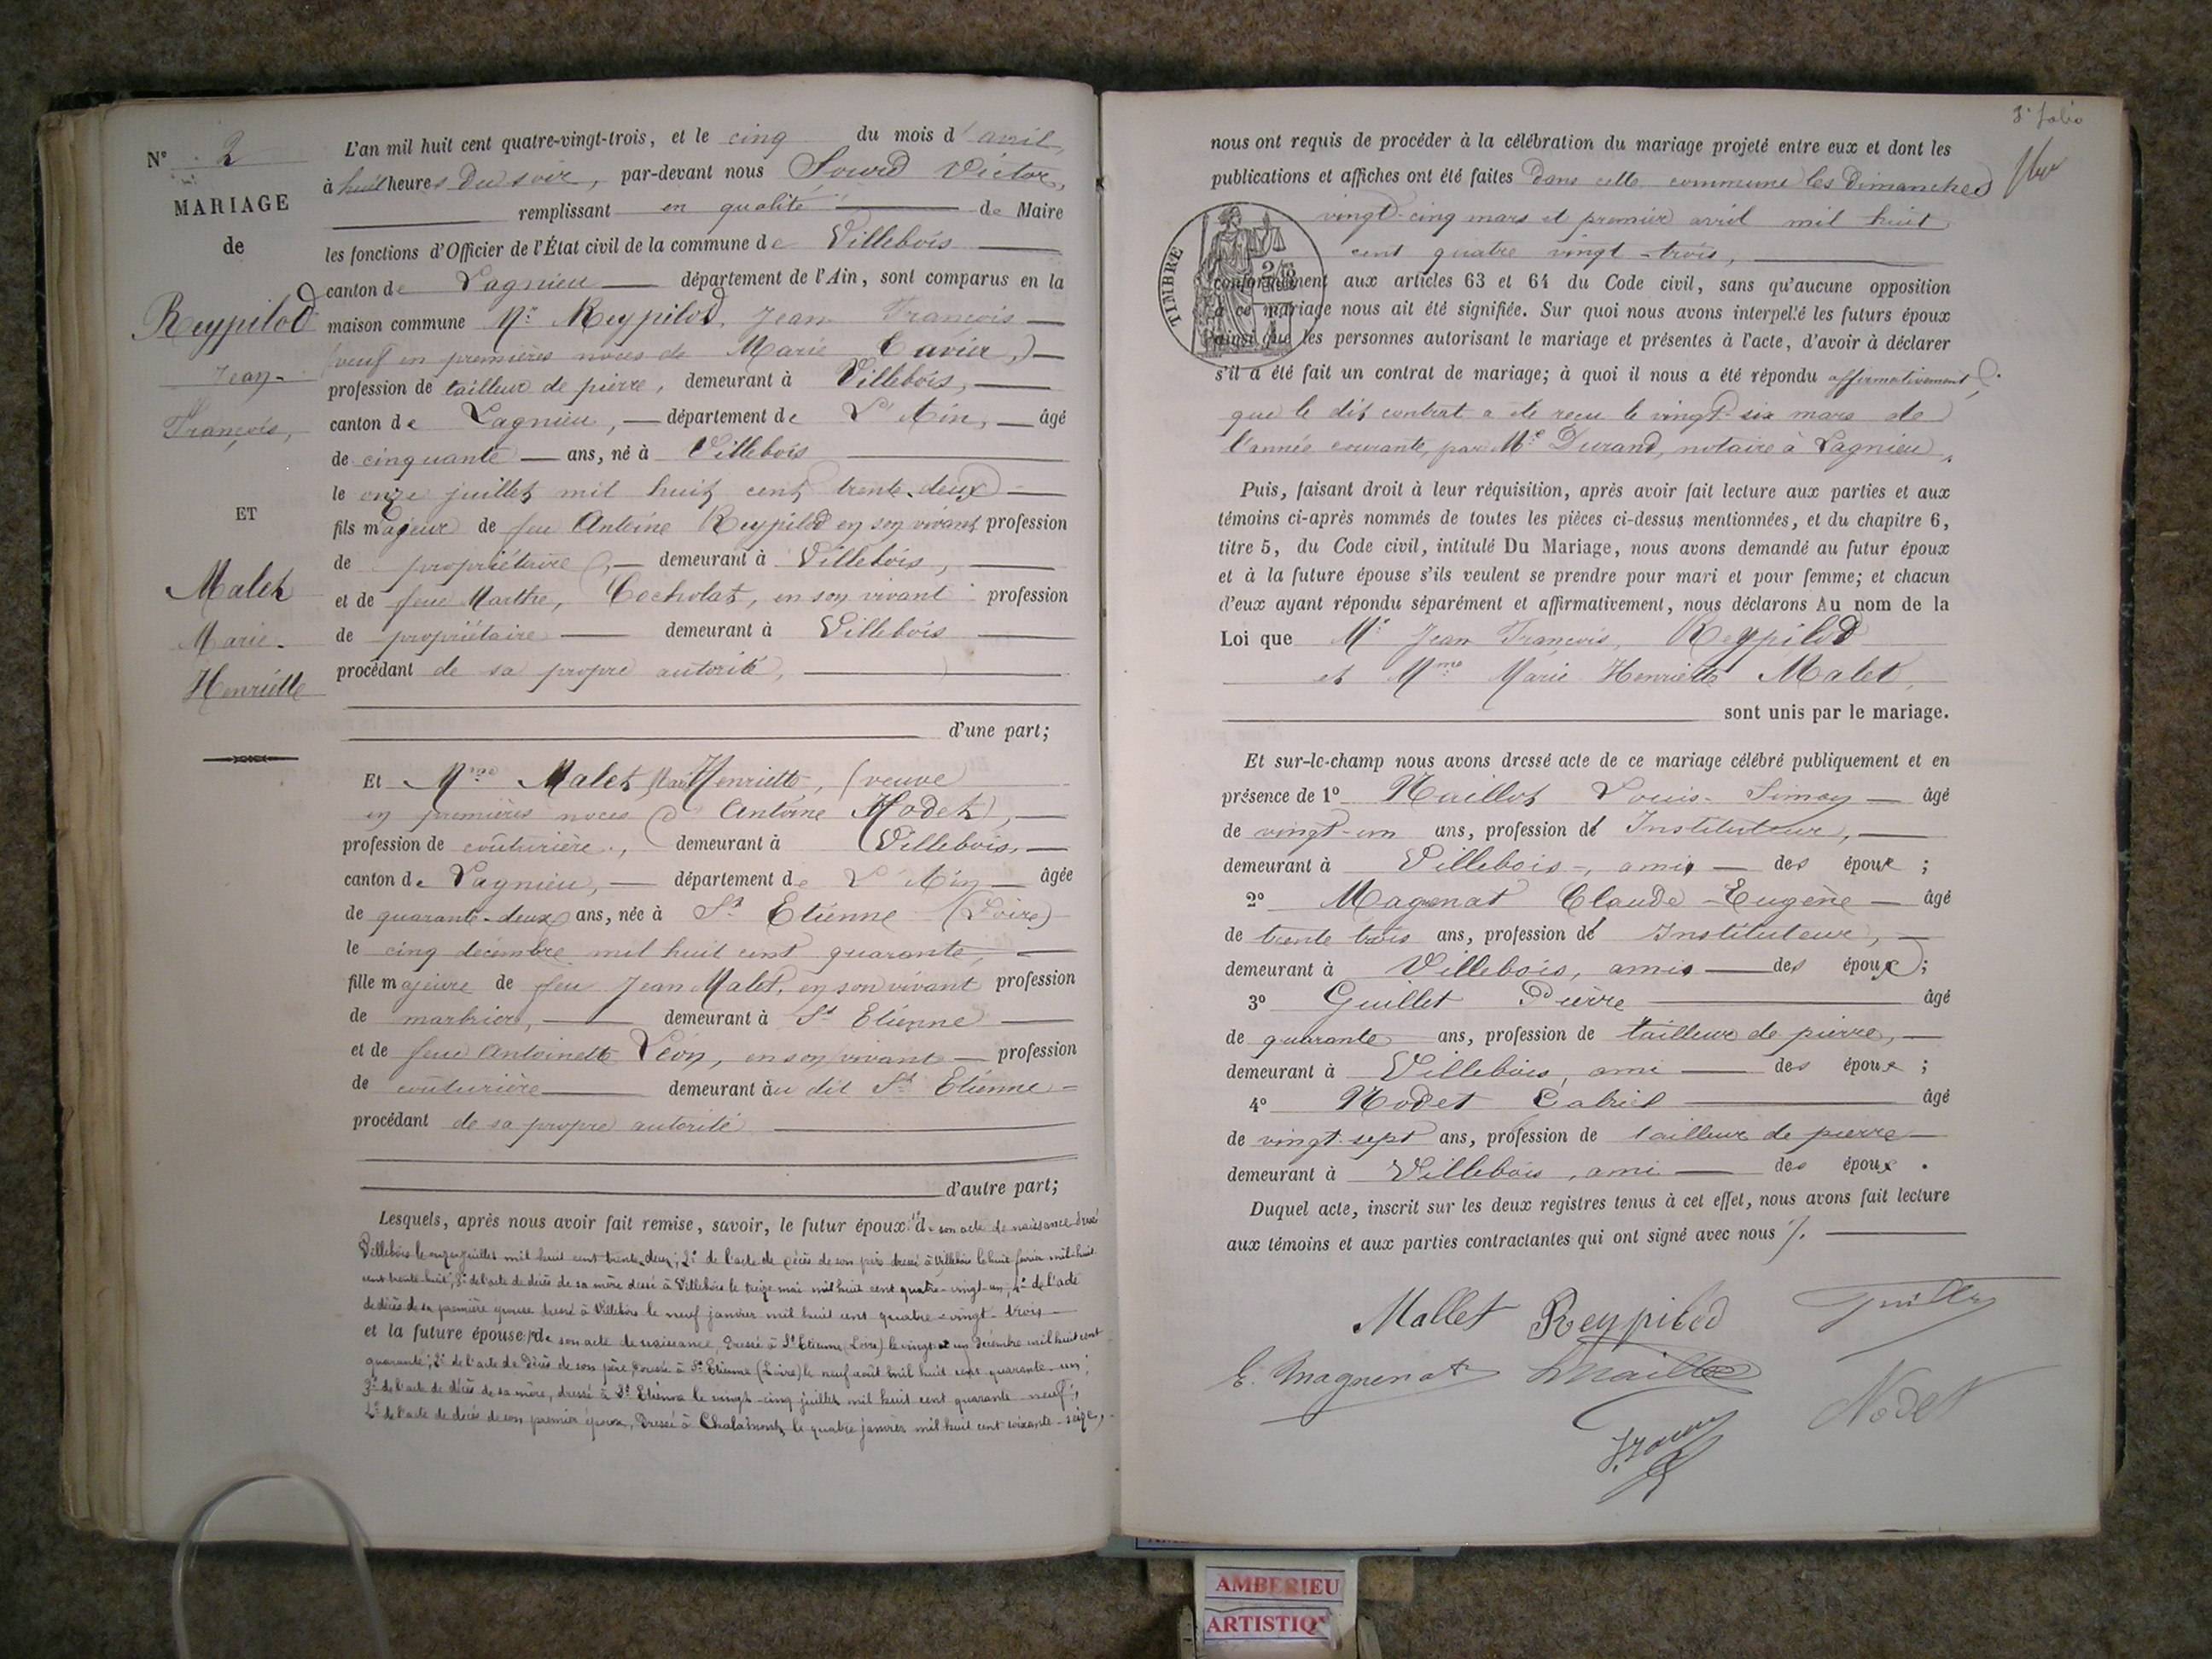 N° 2
MARIAGE
de
Reypilod
Jean-
François,
ET
Malet
Marie-
Henriette
L'an mil huit cent quatre-vingt-trois, et le cinq du mois d'avril,
à huit heures du soir, par-devant nous Sourd Victor,
remplissant en qualité de Maire
les fonctions d'Officier de l'État civil de la commune de Villebois
canton de Lagnieu département de l'Ain, sont comparus en la
maison commune Mr Reypilod, Jean François
(veuf en premières noces de Marie Cavier,)
profession de tailleur de pierre, demeurant à Villebois,
canton de Lagnieu, département de L'Ain, âgé
de cinquante ans, né à Villebois
le onze juillet mil huit cent trente-deux
fils majeur de feu Antoine Reypilod en son vivant profession
de propriétaire, demeurant à Villebois,
et de feue Marthe, Cocholat, en son vivant profession
de propriétaire demeurant à Villebois
procédant de sa propre autorité,
d'une part;
Et Mme Malet, Marie Henriette, (veuve
en premières noces d'Antoine Nodet),
profession de coûturière, demeurant à Villebois,
canton de Lagnieu, département de L'Ain âgée
de quarante-deux ans, née à St Etienne (Loire)
le cinq décembre mil huit cent quarante,
fille majeure de feu Jean Malet, en son vivant profession
de marbrier, demeurant à St Etienne
et de feue Antoinette Léon, en son vivant profession
de coûturière demeurant au dit St Etienne
procédant de sa propre autorité
d'autre part;
Lesquels, après nous avoir fait remise, savoir, le futur époux: 1° de son acte de naissance dressé
Villebois le onze juillet mil huit cent trente-deux; 2° de l'acte de décès de son père dressé à Villebois le huit février mil huit
cent trente huit; 3° de l'acte de décès de sa mère dressé à Villebois le treize mai mil huit cent quatre-vingt-un; 4° de l'acte
de décès de sa première épouse dressé à Villebois le neuf janvier mil huit cent quatre-vingt-trois
et la future épouse: 1° de son acte de naissance, dressé à St Etienne (Loire) le vingt et un décembre mil huit cent
quarante; 2° de l'acte de décès de son père, dressé à St Etienne (Loire) le neuf août mil huit cent quarante-un;
3° de l'acte de décès de sa mère, dressé à St Etienne le vingt-cinq juillet mil huit cent quarante-neuf;
4° de l'acte de décès de son premier époux, dressé à Chalamont, le quatre janvier mil huit cent soixante-seize,
3e folio
nous ont requis de procéder à la célébration du mariage projeté entre eux et dont les
publications et affiches ont été faites dans cette commune les dimanches
vingt-cinq mars et premier avril mil huit
cent quatre vingt-trois,
TIMBRE
conformément aux articles 63 et 64 du Code civil, sans qu'aucune opposition
à ce mariage nous ait été signifiée. Sur quoi nous avons interpellé les futurs époux
ainsi que les personnes autorisant le mariage et présentes à l'acte, d'avoir à déclarer
s'il a été fait un contrat de mariage; à quoi il nous a été répondu affirmativement,
que le dit contrat a été reçu le vingt-six mars de
l'année courante, par Me Durand, notaire à Lagnieu,
Puis, faisant droit à leur réquisition, après avoir fait lecture aux parties et aux
témoins ci-après nommés de toutes les pièces ci-dessus mentionnées, et du chapitre 6,
titre 5, du Code civil, intitulé Du Mariage, nous avons demandé au futur époux
et à la future épouse s'ils veulent se prendre pour mari et pour femme; et chacun
d'eux ayant répondu séparément et affirmativement, nous déclarons Au nom de la
Loi que Mr Jean François, Reypilod
et Mme Marie Henriette Malet,
sont unis par le mariage.
Et sur-le-champ nous avons dressé acte de ce mariage célébré publiquement et en
présence de 1° Maillot Louis-Simon âgé
de vingt-un ans, profession d'Instituteur,
demeurant à Villebois, amis des époux;
2° Magnenat Claude-Eugène âgé
de trente trois ans, profession d'Instituteur,
demeurant à Villebois, amis des époux;
3° Guillet Pierre âgé
de quarante ans, profession de tailleur de pierre,
demeurant à Villebois, ami des époux;
4° Nodet Gabriel âgé
de vingt-sept ans, profession de tailleur de pierre
demeurant à Villebois, ami des époux.
Duquel acte, inscrit sur les deux registres tenus à cet effet, nous avons fait lecture
aux témoins et aux parties contractantes qui ont signé avec nous ./.
Mallet Reypilod Guillet
E. Magnenat Maillot
Nodet
AMBERIEU
ARTISTIQ